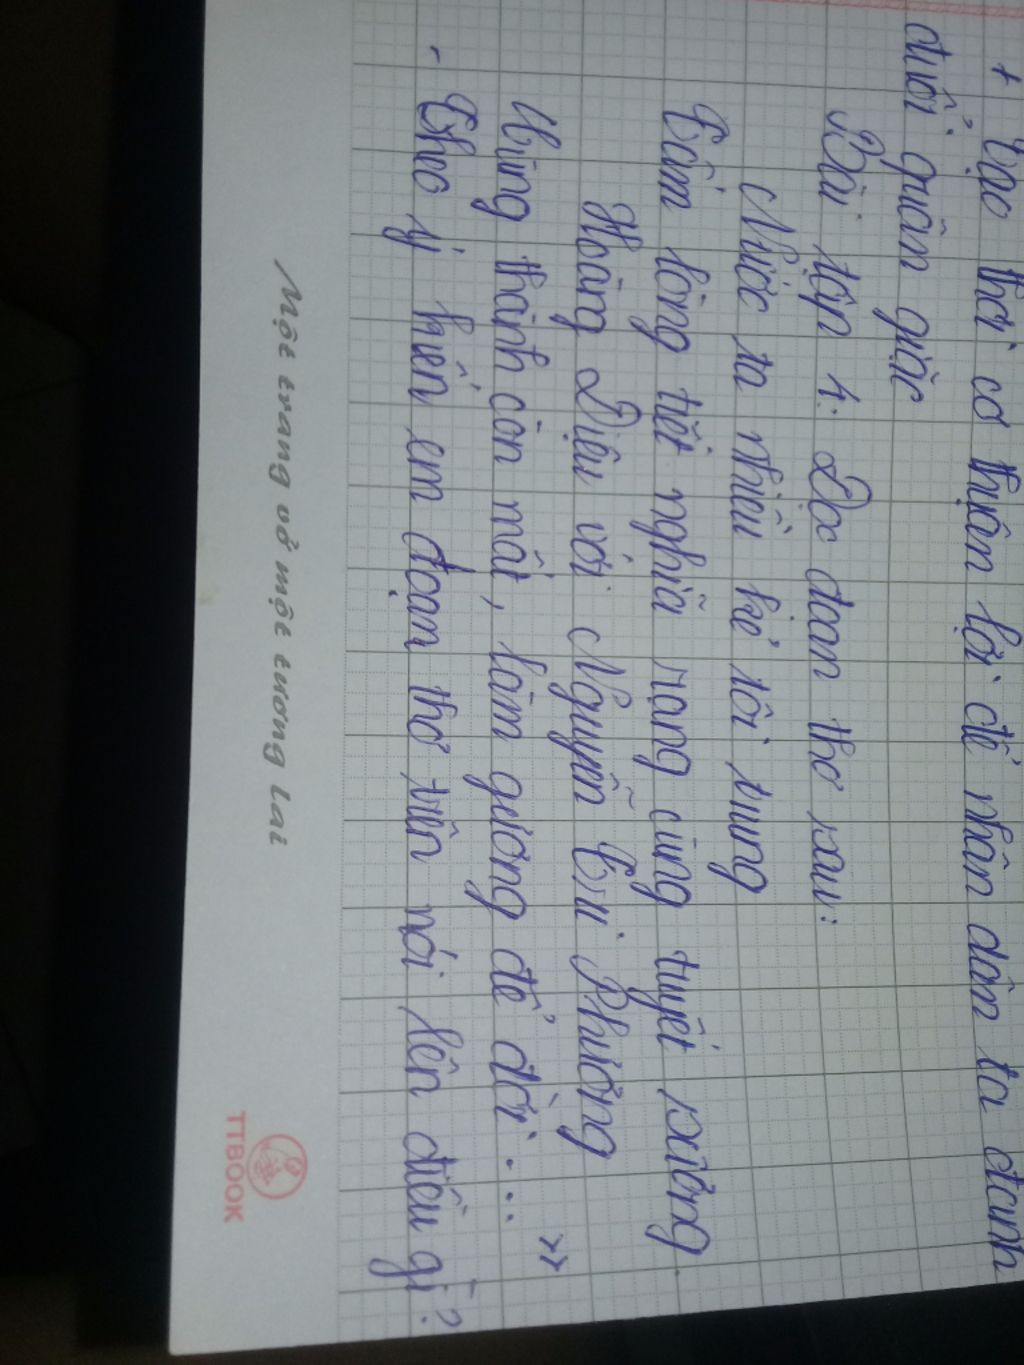 + Tạo thời cơ thuận lợi để nhân dân ta đánh
đuổi quân giặc
Bài tập 1: Đọc đoạn thơ sau:
Nước ta nhiều kẻ tôi trung
Tấm lòng tiết nghĩa rạng cùng tuyết sương
Hoàng Diệu với Nguyễn Tri Phương
Cùng thành còn mất, làm gương để đời... »
- Theo ý kiến em đoạn thơ trên nói lên điều gì?
Một trang vở một tương lai
TTBOOK